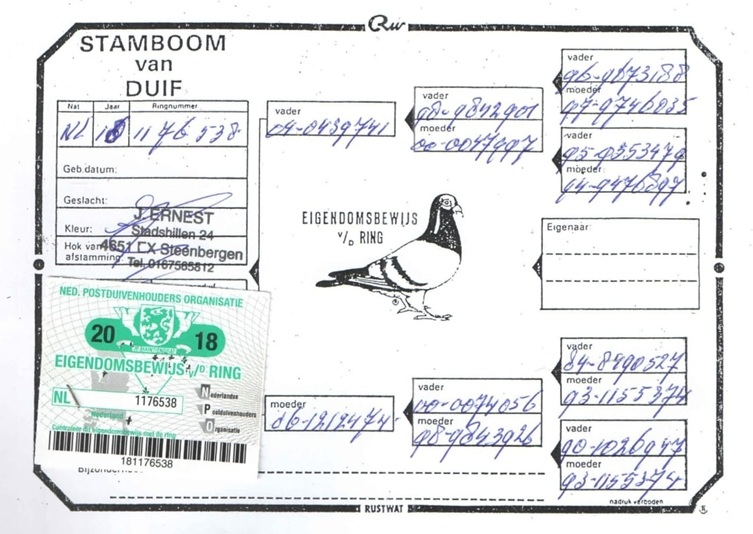 Rw
STAMBOOM
van
DUIF
Nat Jaar Ringnummer
NL 18 1176 538
Geb.datum:
Geslacht:
Kleur:
Hok van
afstamming:
J. ERNEST
Stadshillen 24
4651 EX Steenbergen
Tel. 0167565812
vader
04-0439741
vader
98-9842901
moeder
00-0047997
vader
96-9673188
moeder
97-9746035
vader
95-9353479
moeder
94-9476897
EIGENDOMSBEWIJS
v/D RING
Eigenaar:
NED. POSTDUIVENHOUDERS ORGANISATIE
20 18
EIGENDOMSBEWIJS v/D RING
NL 1176538
Nederland
Nederlandse
Postduivenhouders
Organisatie
181176538
moeder
06-1212474
vader
00-0074056
moeder
98-9843926
vader
84-8490527
moeder
93-1155374
vader
90-1026947
moeder
93-1155374
RUSTWAT
nadruk verboden